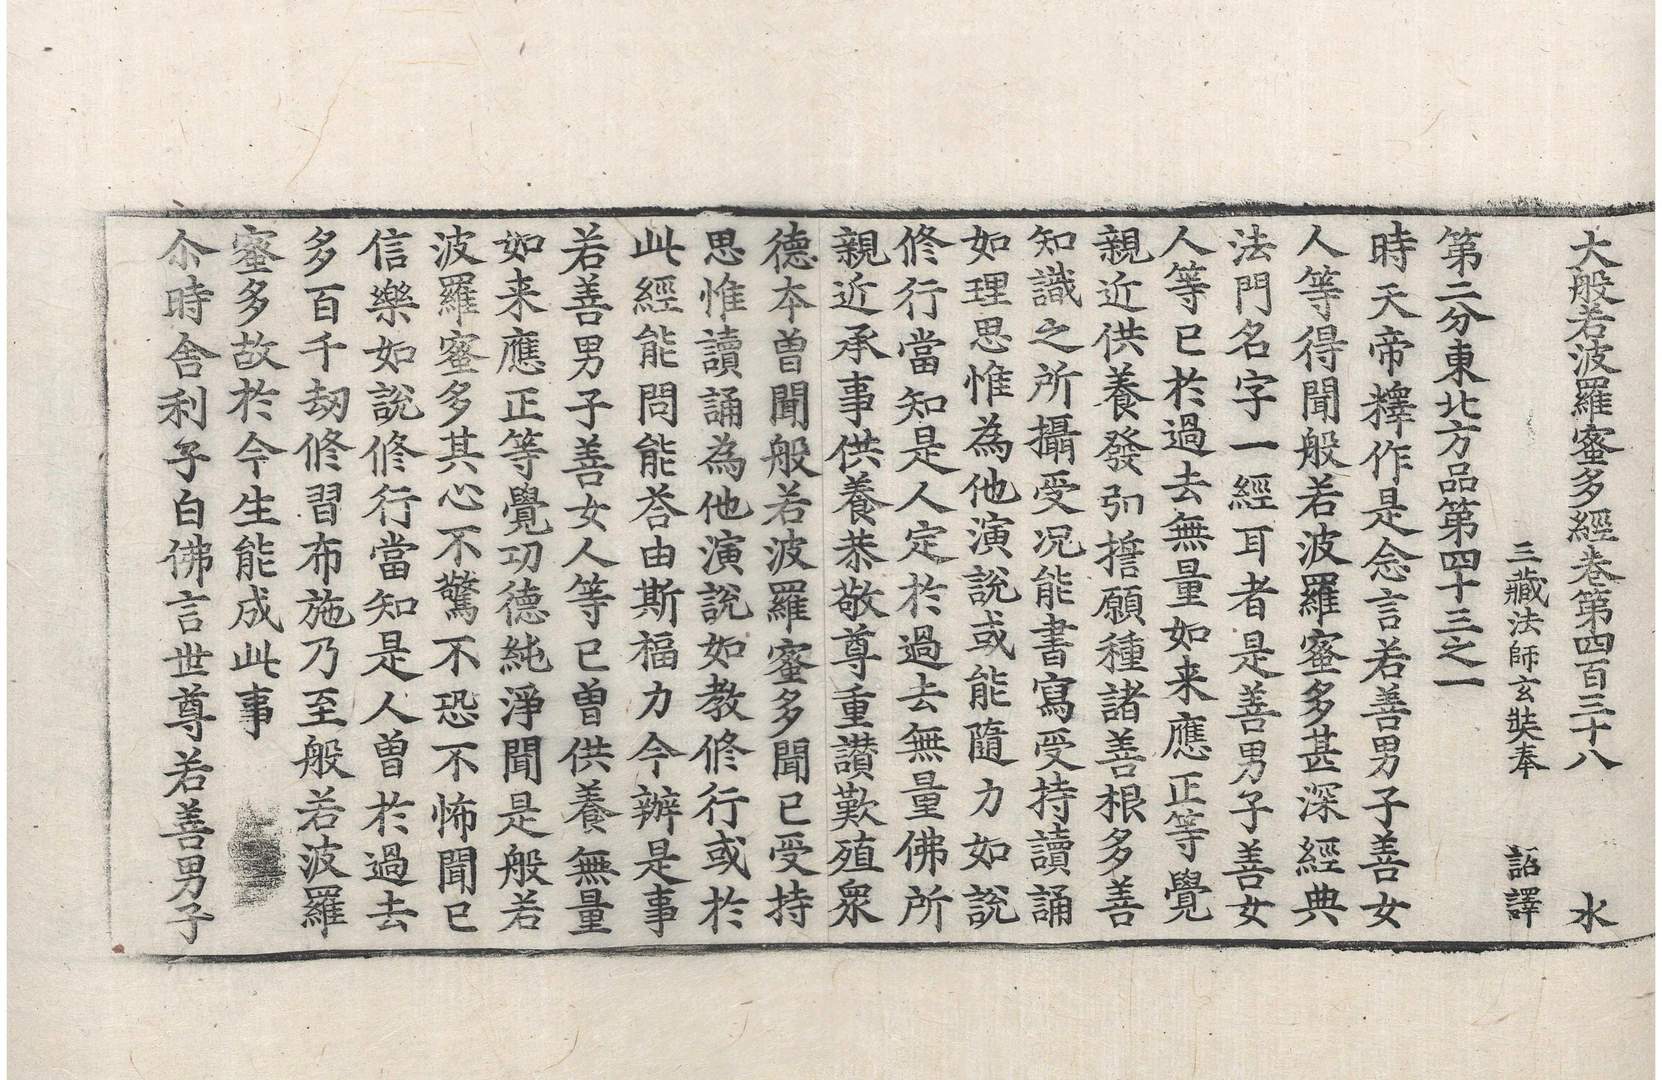 大般若波羅蜜多經卷第四百三十八 水
三藏法師玄奘奉 詔譯
第二分東北方品第四十三之一
時天帝釋作是念言若善男子善女
人等得聞般若波羅蜜多甚深經典
法門名字一經耳者是善男子善女
人等已於過去無量如来應正等覺
親近供養發弘擔願種諸善根多善
知識之所攝受况能書寫受持讀誦
如理思惟為他演說或能隨力如說
修行當知是人定於過去無量佛所
親近承事供養恭敬尊重讃歎殖衆
德本曽聞般若波羅蜜多聞已受持
思惟讀誦為他演說如教修行或於
此經能問能荅由斯福力今辦是事
若善男子善女人等已曽供養無量
如来應正等覺功德純淨聞是般若
波羅蜜多其心不驚不恐不怖聞已
信樂如說修行當知是人曽於過去
多百千劫修習布施乃至般若波羅
蜜多故於今生能成此事
尒時舍利子白佛言世尊若善男子